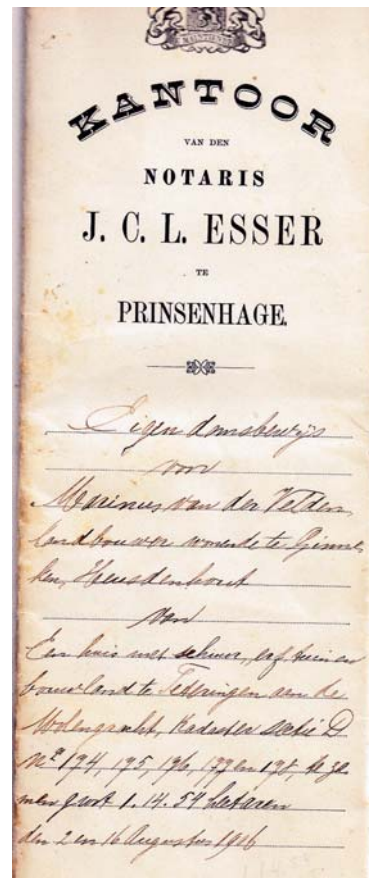 KANTOOR
VAN DEN
NOTARIS
J. C. L. ESSER
TE
PRINSENHAGE.
Eigendomsbewijs
voor
Marinus van der Velden,
landbouwer wonende te Ginne
ken, Heusdenhout
van
Een huis met schuur, erf tuin en
bouwland te Teteringen aan de
Molengracht, Kadaster sectie D
No 194, 195, 196, 197 en 198, te za
men groot 1.14.54 hectaren
den 2 en 16 Augustus 1916